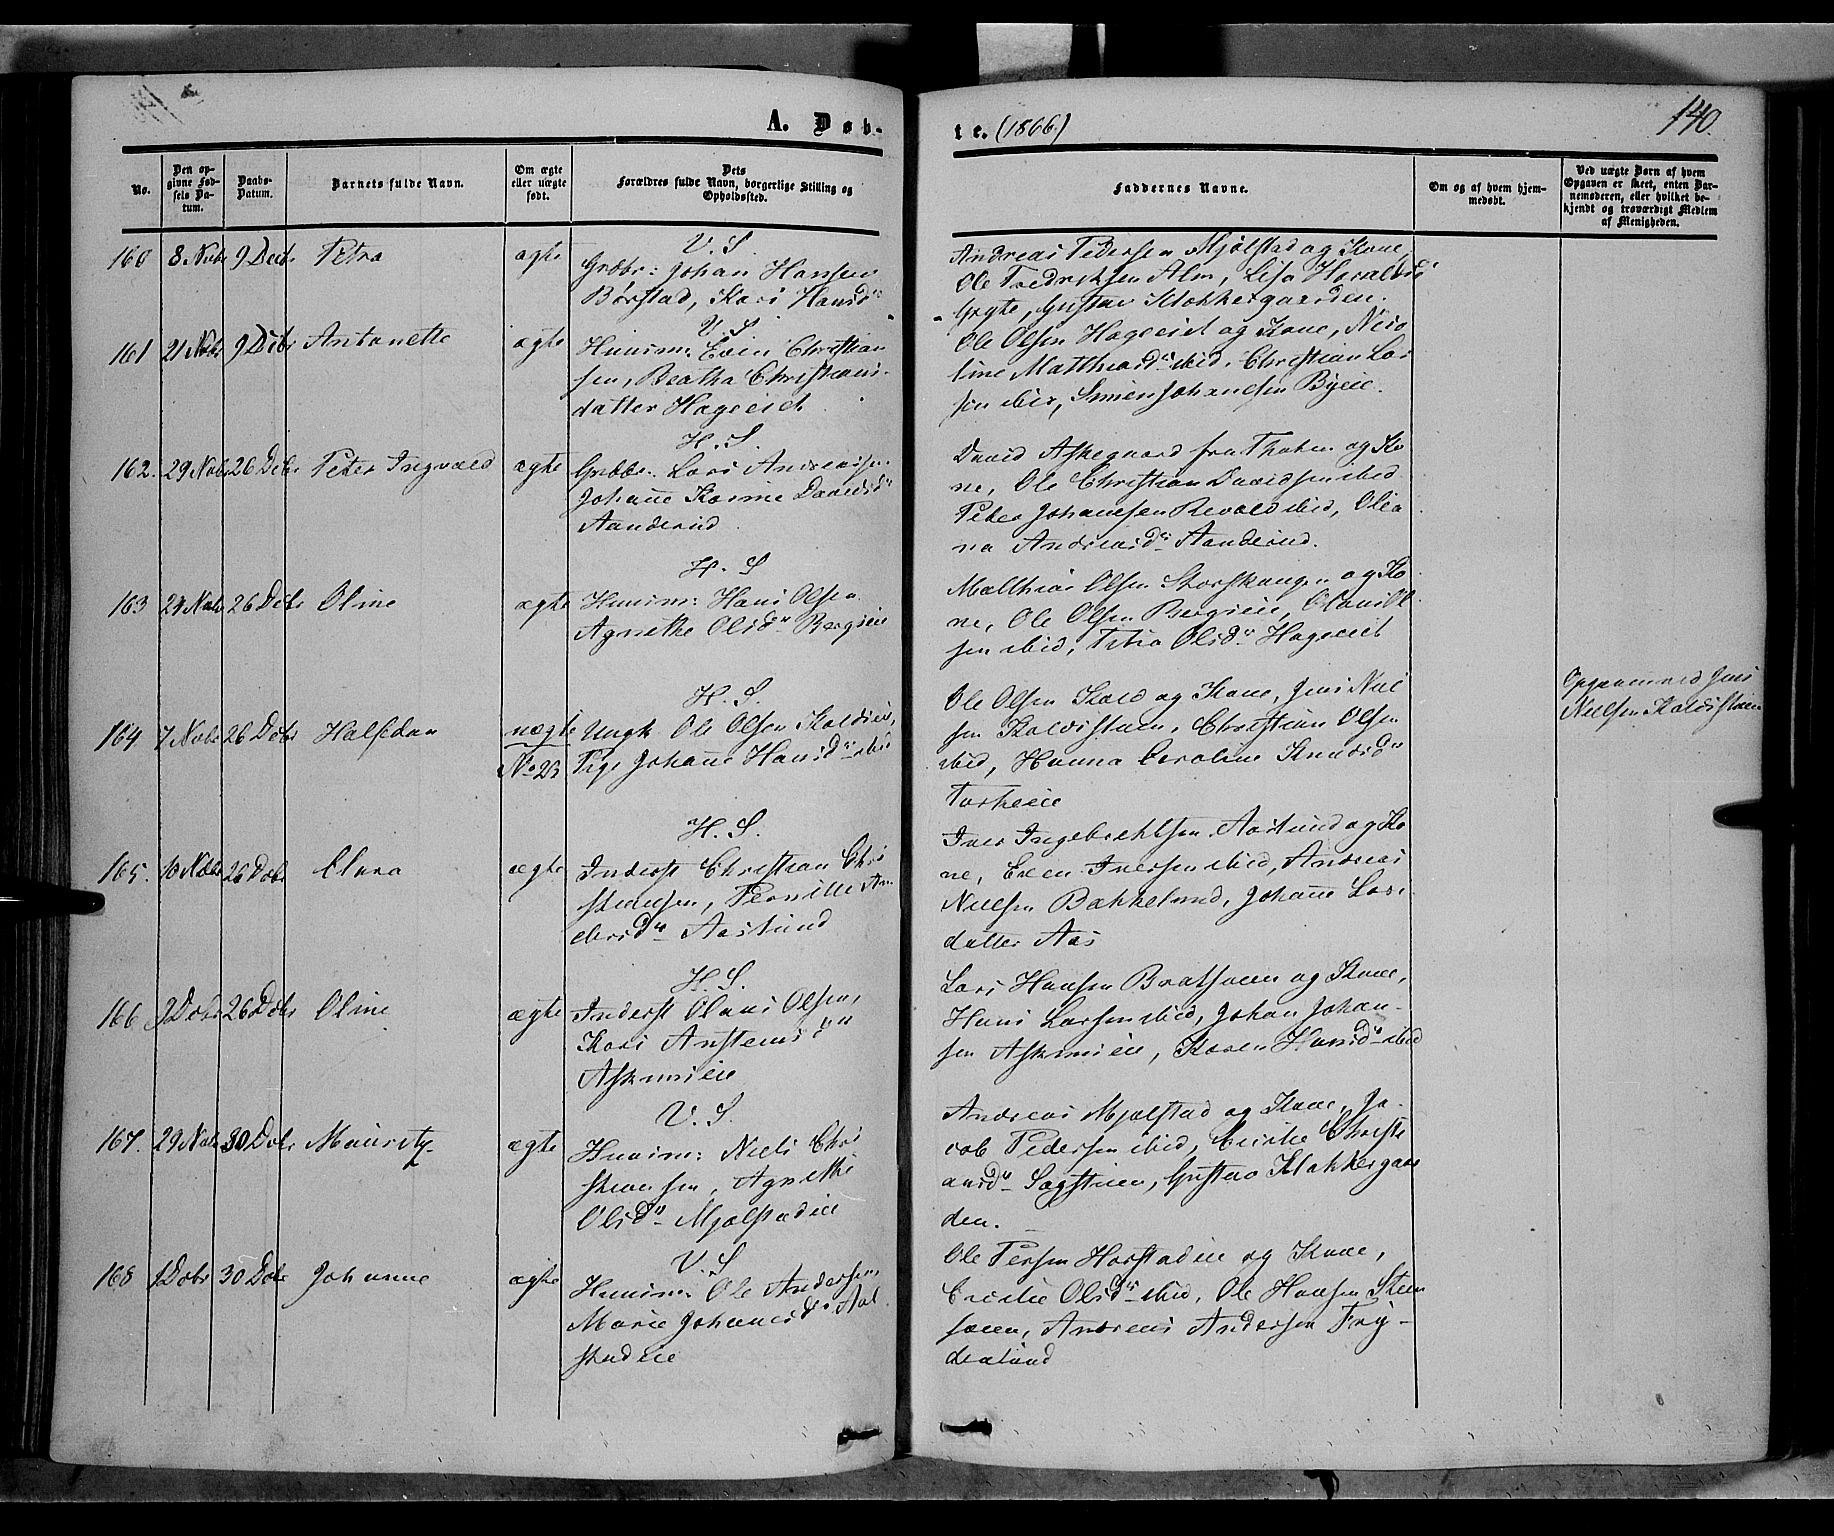 A. Døb-
te. (1866.)
140.
No.
Den op-
givne Fød-
sels Da-
tum.
Daabs-
Datum.
Barnets fulde Navn.
Om ægte
eller uægte
født.
Dets
Forældres fulde Navn, borgerlige Stilling og
Opholdssted.
Faddernes Navne.
Om og af hvem hjem-
medøbt.
Ved uægte Børn af hvem
Opgaven er skeet, enten Bar-
nemoderen, eller hvilket be-
kjendt og troværdigt Medlem
af Menigheden.
160 8 Novbr 9 Decbr Petra ægte
V. S.
Grdbr: Johan Hansen
Børstad, Kari Hansd.
Andreas Pedersen Mjølstad og Kone,
Ole Fredriksen Alm, Lisa Haralds
Gustav Klokkergaarden.
161 21 Novbr 9 Dcbr Antonette ægte
V. S
Huusm: Even Christian
sen, Beatha Christians-
datter Hageeiet
Ole Olsen Hageeiet og Kone, Nico
line Matthiasd. ibid. Christian Lar
sen ibid, Simen Johansen Byeie.
162. 29 Novbr 26 Dcbr Peter Ingvald ægte
H. S.
Grdbr. Lars Andreassen
Johanne Karine Davidsd.
Aanderud
David Askegaard fra Thoten og Ko
ne, Ole Christian Davidsen ibid
Peter Johansen Revald ibid, Olia
na Andreasd. Aanderud.
163 24 Novbr 26 Dcbr Oline ægte
H. S
Huusm: Hans Olsen
Agnethe Olsd. Bergeie
Matthias Olsen Storskaugen og Ko
ne, Ole Olsen Bergeie, Ol
sen ibid, Olsd. Hageeiet
164 7 Novbr 26 Dcbr Halfdan uægte
No 23
H. S.
Ungk. Ole Olsen Koldeie,
Pige Johanne Hansd. ibid
Ole Olsen Kold og Kone, Jens Niel
sen Koldstuen, Christian Olsen
ibid, Hanna Caroline Knudsd.
Torkeeie
Opgaven ved Jens
Nielsen Koldstuen
165. 10 Novbr 26 Dcbr Clara ægte
H. S.
Inderst Christian Chri
stiansen, Pernille An
dersd. Aaslund
Iver Ingebrethsen Aaslund og Ko
ne, Even Iversen ibid, Andreas
Nielsen Bakkelund, Johanne Lars
datter Aas
166 9 Dcbr 26 Dcbr Oline ægte
H. S.
Inderst Olaus Olsen,
Kari Anstensd.
Askimeie
Lars Hansen Bratsveen og Kone,
Hans Larsen ibid, Johan Johan-
sen Askimeie, Karen Hansd. ibid
167. 29 Novbr 30 Dcbr Mauritz ægte
V. S.
Huusm: Niels Chri
stiansen, Agnethe
Olsd. Mjølstadeie
Andreas Mjølstad og Kone, Ja-
cob Pedersen ibid, Christi
ansd. Sagstuen, Gustav Klokkergaar
den.
168 1 Dcbr 30 Dcbr Johanne ægte
V. S
Huusm: Ole Andersen,
Marie Johannesd.
stadeie
Ole Persen Horstadeie og Kone,
Cecilie Olsd. ibid, Ole Hansen Steen
sveen, Andreas Andersen Fry-
denlund